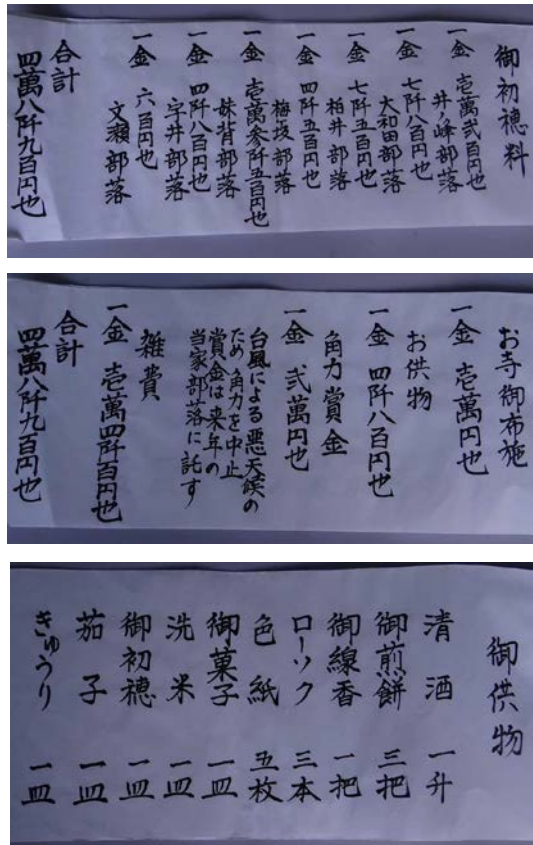 御初穂料
一金 壱萬弐百円也
井ノ峰部落
一金 七阡八百円也
大和田部落
一金 七阡五百円也
柏井部落
一金 四阡五百円也
梅坂部落
一金 壱萬参阡五百円也
妹背部落
一金 四阡八百円也
宇井部落
一金 六百円也
文瀬部落
合計
四萬八阡九百円也
お寺御布施
一金 壱萬円也
お供物
一金 四阡八百円也
角力賞金
一金 弐萬円也
台風による悪天候の
ため角力を中止
賞金は来年の
当家部落に託す
雑費
一金 壱萬四阡百円也
合計
四萬八阡九百円也
御供物
清酒 一升
御煎餅 三把
御線香 一把
ローソク 三本
色紙 五枚
御菓子 一皿
洗米 一皿
御初穂 一皿
茄子 一皿
きゅうり 一皿